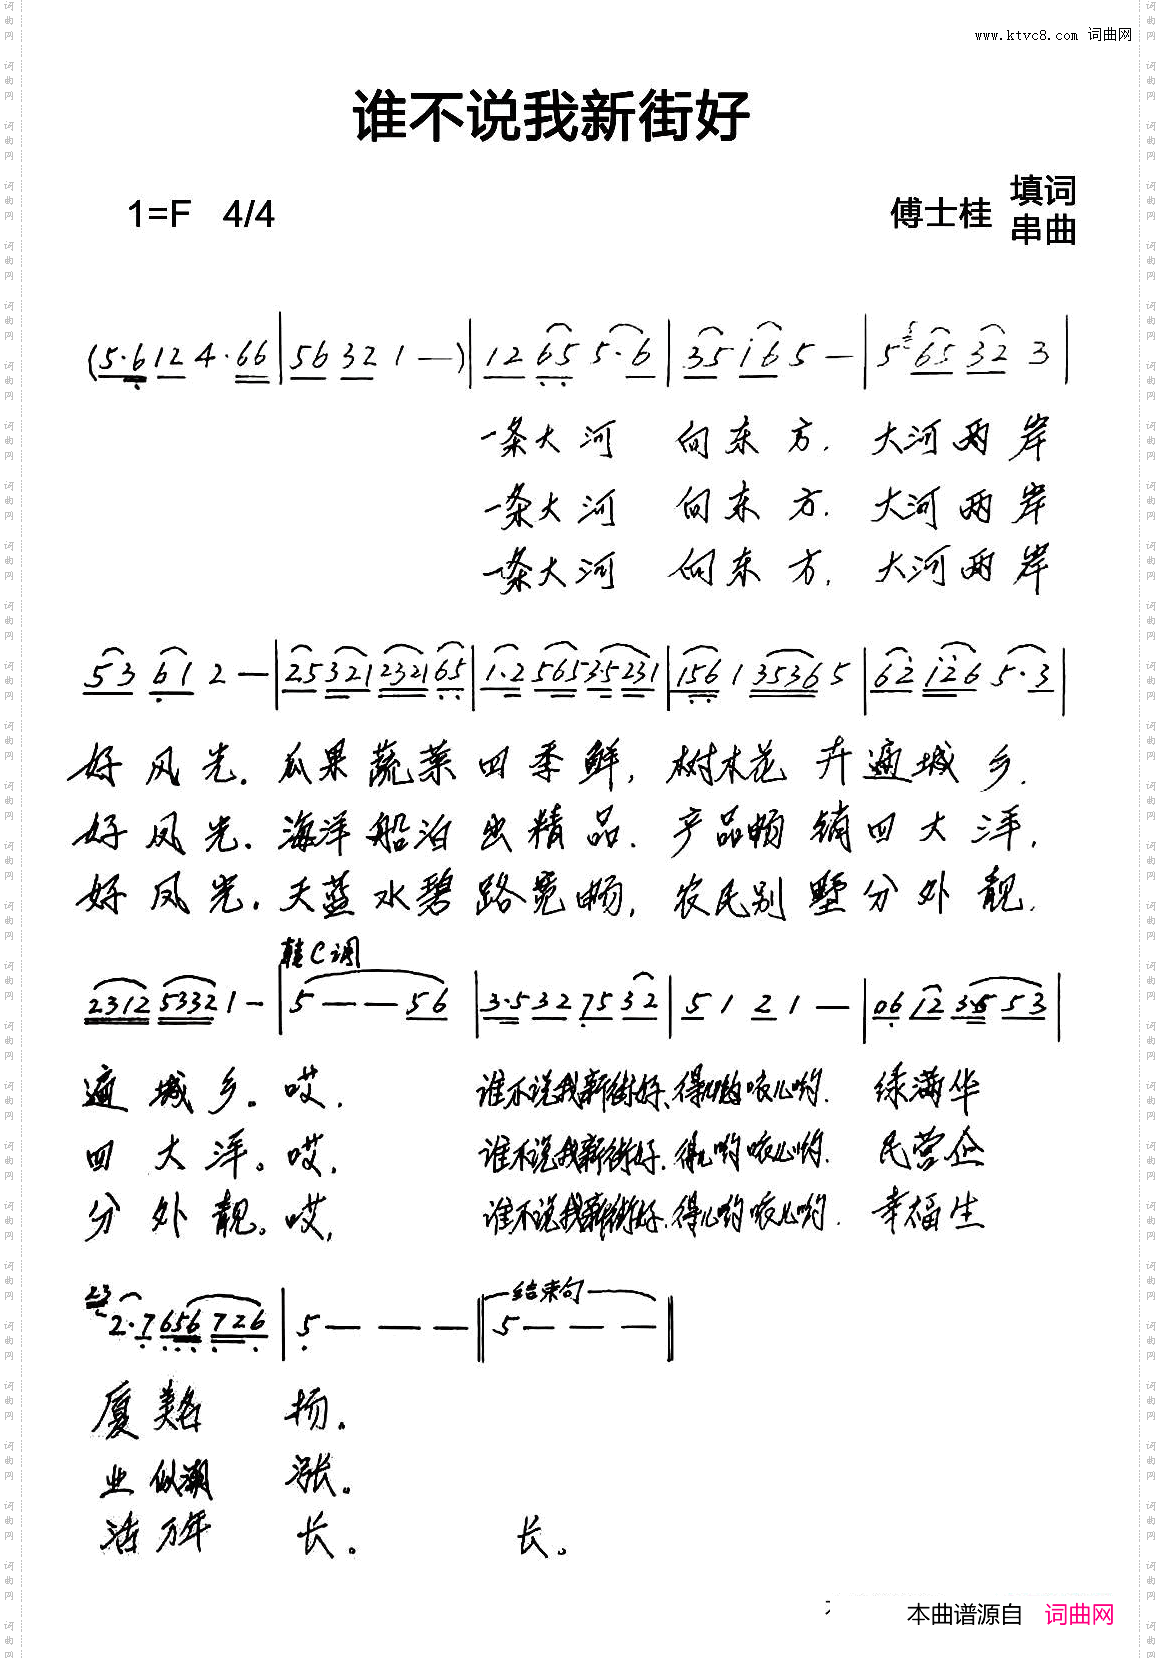 www.ktvc8.com 词曲网
谁不说我新街好
1=F 4/4
傅士桂 填词
串曲
(5·6 12 4·66 | 56 32 1 —) | 12 65 5·6 | 35 i6 5 — | 5 65 32 3 |
一条大河 向东方. 大河两岸
一条大河 向东方. 大河两岸
一条大河 向东方. 大河两岸
53 61 2 — | 25 321 2321 65 | 1·2 565 3·5 231 | 156 1 35365 | 62 i26 5·3 |
好风光. 瓜果蔬菜四季鲜, 树木花卉遍城乡.
好风光. 海洋船泊出精品. 产品畅销四大洋,
好风光. 天蓝水碧路宽畅, 农民别墅分外靓.
转C调
2312 5332 1 - | 5 — — 56 | 3·5 32 75 32 | 5 1 2 1 — | 06 12 3·5 53 |
遍城乡。哎. 谁不说我新街好、得儿哟咴儿哟. 绿满华
四大洋。哎, 谁不说我新街好. 得儿哟咴儿哟. 民营企
分外靓。哎, 谁不说我新街好. 得儿哟咴儿哟. 幸福生
23 结束句
2·7 656 726 | 5 — — — || 5 — — — ||
厦美名 扬。
业似潮 涨。
活万年 长。 长。
本曲谱源自 词曲网